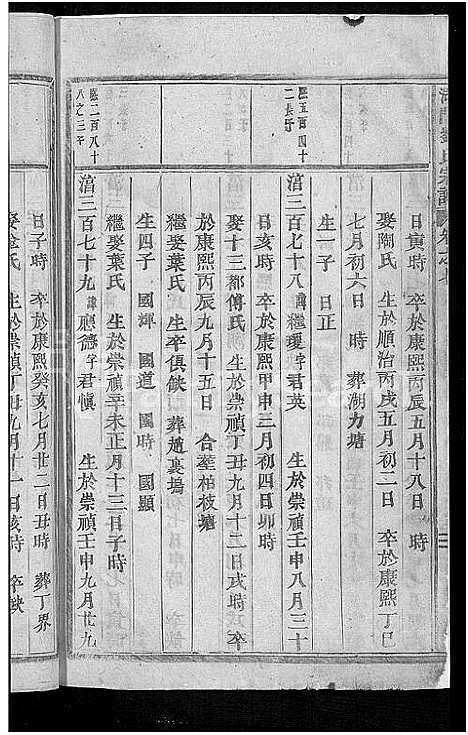 日寅時 卒於康熙丙辰五月十八日 時
娶陶氏 生於順治丙戌五月初二日 卒於康熙丁巳
七月初六日 時 葬湖力塘
生一子 日正
熙五百四十
二長子
湇三百七十八 諱繼瓊 字君英 生於崇禎壬申八月三十
日亥時 卒於康熙甲申三月初四日卯時
娶十三都傅氏 生於崇禎丁丑九月十二日戌時 卒
於康熙丙辰九月十五日 合塟柏枝塘
繼娶葉氏 生卒俱缺 葬趙裏塢
生四子 國渾 國道 國時 國顯
繼娶葉氏 生於崇禎辛未正月十三日子時
熙二百八十
八之三子
湇三百七十九 諱應德 字君愼 生於崇禎壬申九月廿九
日子時 卒於康熙癸亥七月廿二日丑時 葬丁界
娶金氏 生於崇禎丁丑九月十一日亥時 卒缺